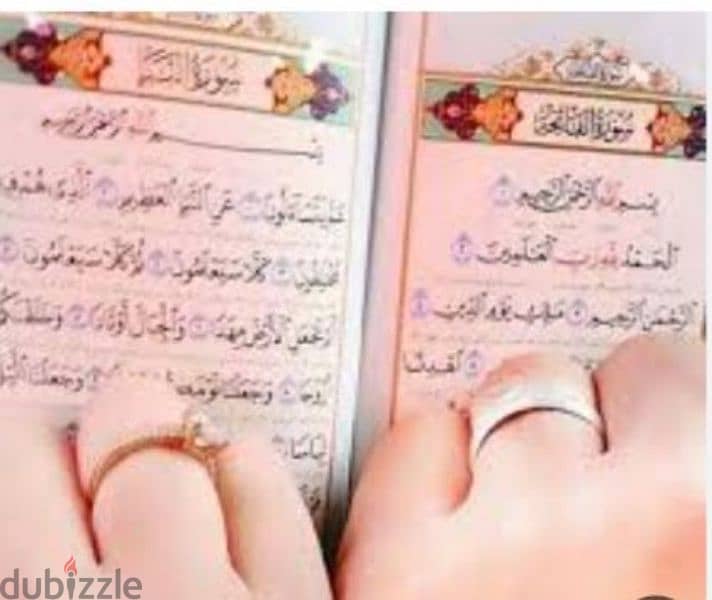 سُورَةُ الفَاتِحَةِ
بِسْمِ اللَّهِ الرَّحْمَٰنِ الرَّحِيمِ
الْحَمْدُ لِلَّهِ رَبِّ الْعَٰلَمِينَ
الرَّحْمَٰنِ الرَّحِيمِ مَٰلِكِ يَوْمِ الدِّينِ
اهْدِنَا
سُورَةُ النَّبَإِ
بِسْمِ اللَّهِ الرَّحْمَٰنِ الرَّحِيمِ
عَمَّ يَتَسَاءَلُونَ عَنِ النَّبَإِ الْعَظِيمِ الَّذِي هُمْ
مُخْتَلِفُونَ كَلَّا سَيَعْلَمُونَ ثُمَّ كَلَّا سَيَعْلَمُونَ
نَجْعَلِ الْأَرْضَ مِهَٰدًا وَالْجِبَالَ أَوْتَادًا
وَجَعَلْنَا وَجَعَلْنَا
لِبَاسًا
dubizzle